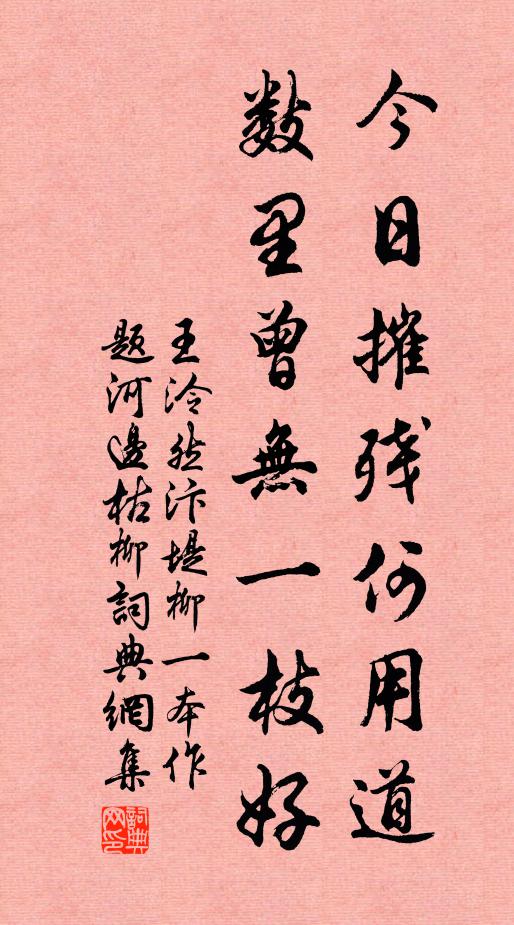 今日摧残何用道
数里曾無一枝好
王泠然汴堤柳一本作
题河邊枯柳詞典網集
詞典网印